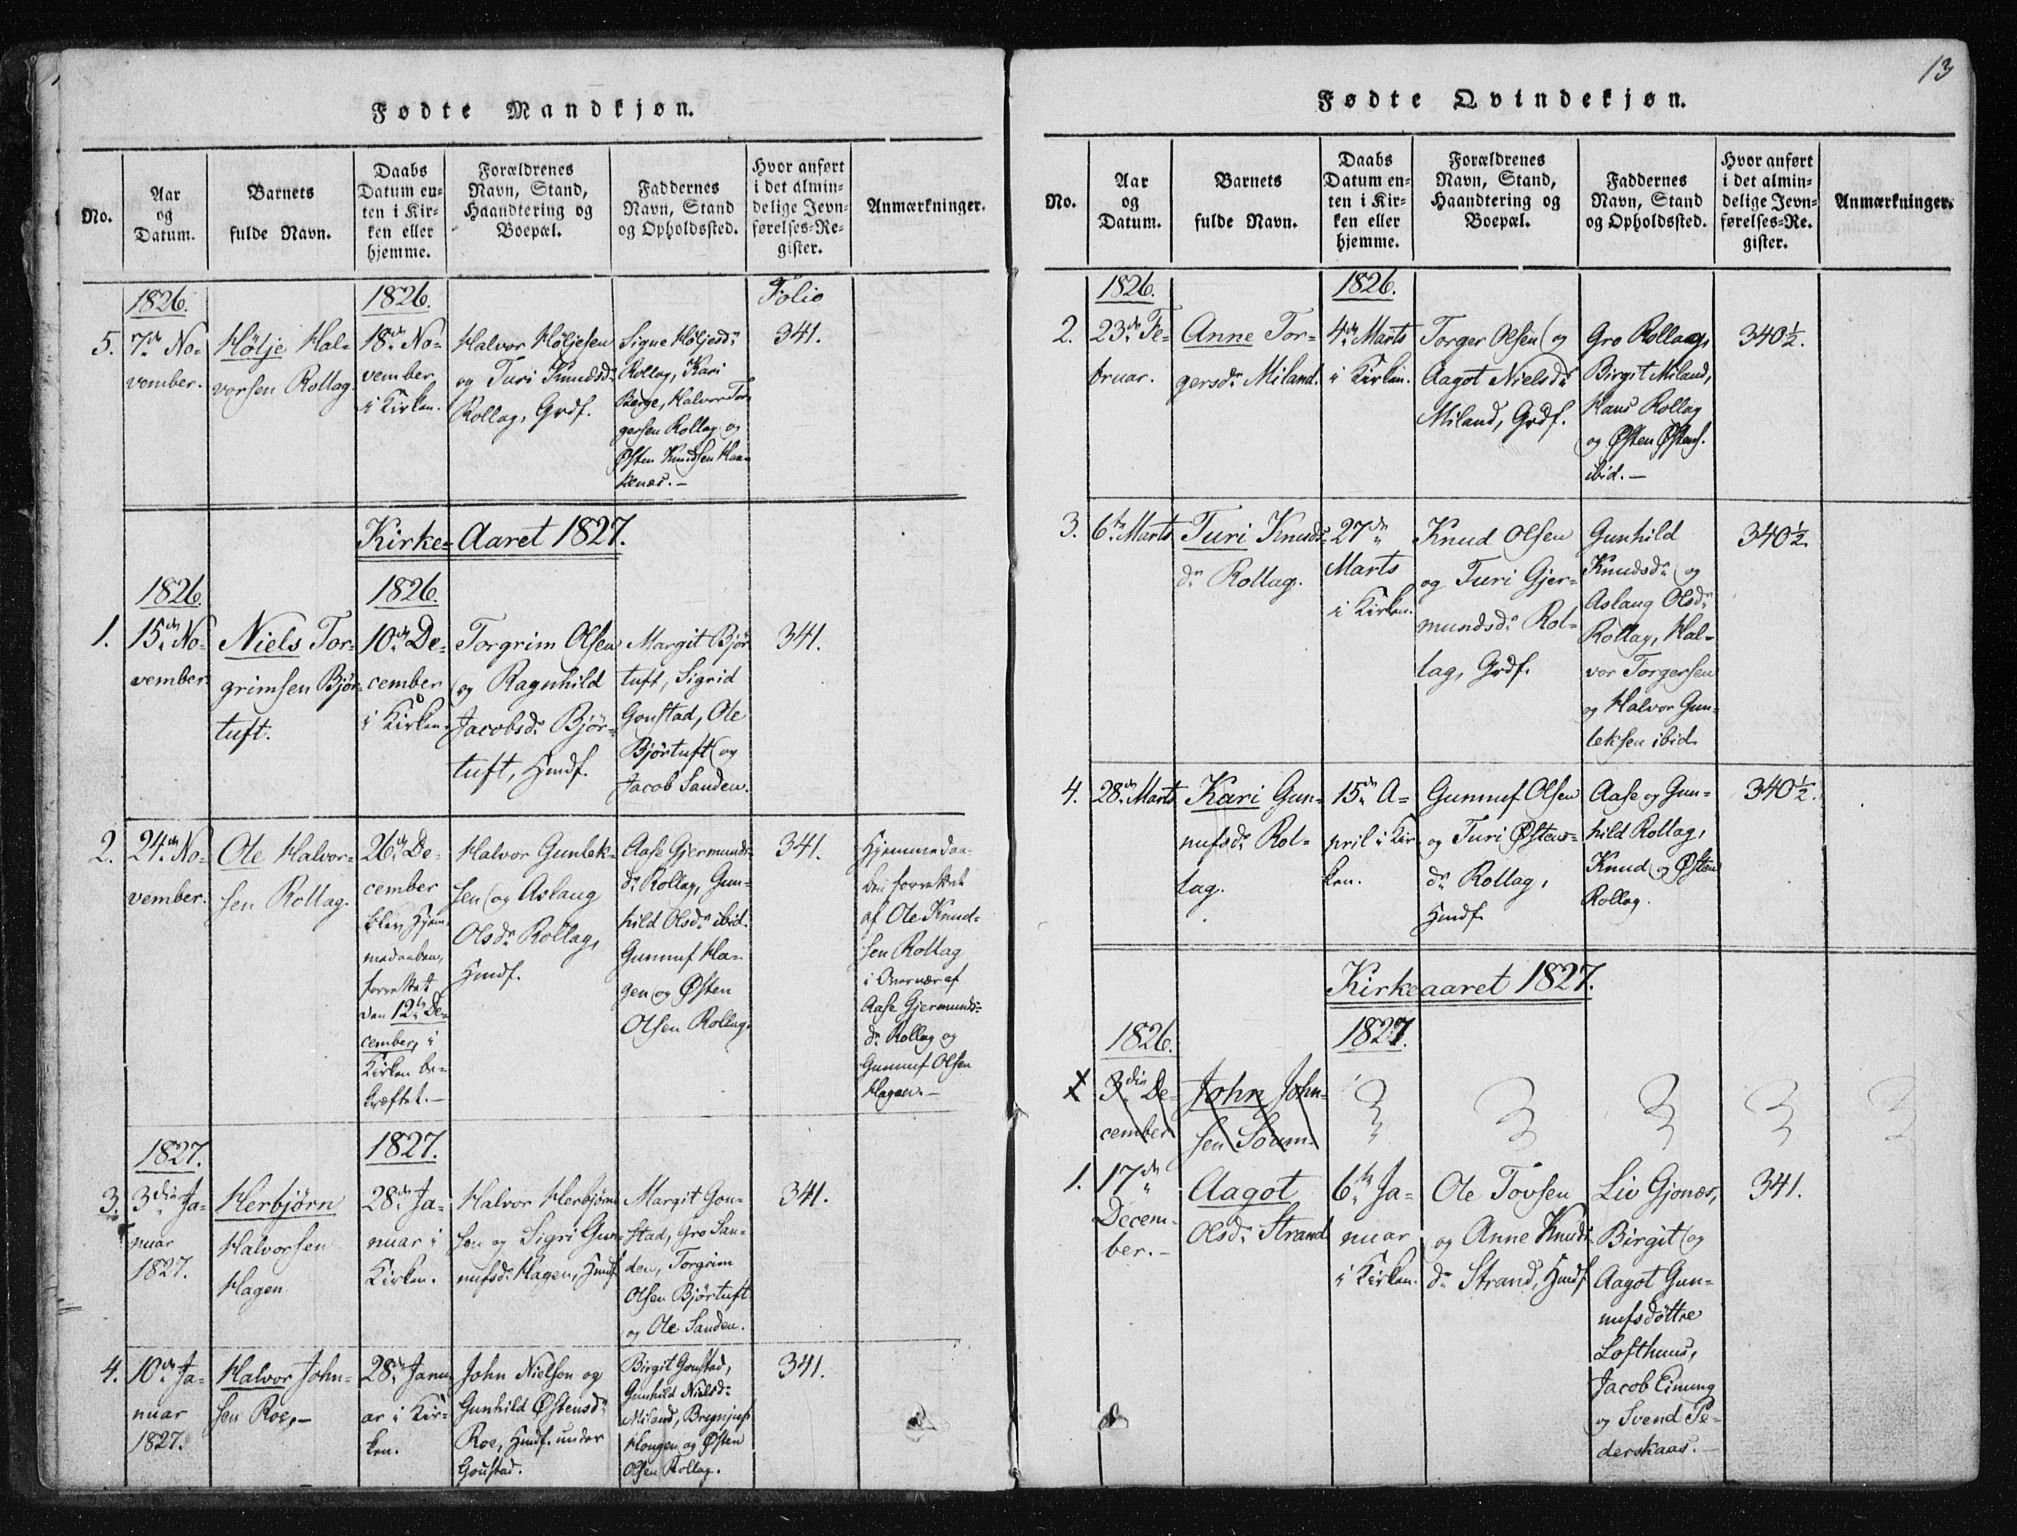 Fødte Mandkjøn.
No.
Aar
og
Datum.
Barnets
fulde Navn.
Daabs
Datum en-
ten i Kir-
ken eller
hjemme.
Forældrenes
Navn, Stand,
Haandtering og
Boepæl.
Faddernes
Navn, Stand
og Opholdssted.
Hvor anført
i det almin-
delige Jevn-
førelses-Re-
gister.
Anmærkninger.
1826.
1826.
Folio
5.
7de No-
vember.
Hølje Hal-
vorsen Rollag.
18de No-
vember
i Kirken.
Halvor Høljesen
og Turi Knudsdr
Rollag, Grdf.
Signe Høljesdr
Rollag, Kari
Berge, Halvor Tor-
gersen Rollag og
Østen Knudsen Haa-
kenæs.-
341.
Kirke-Aaret 1827.
1826.
1826.
1.
15de No-
vember
Niels Tor-
grimsen Bjør-
tuft.
10de De-
cember
i Kirken.
Torgrim Olsen
og Ragnhild
Jacobsdr Bjør-
tuft, Hmdf.
Margit Bjør
tuft, Sigrid
Goustad, Ole
Bjørtuft og
Jacob Sanden.
341.
2.
24de No-
vember.
Ole Halvor-
sen Rollag.
26de De-
cember
blev Hjem-
medaaben,
forrettet
den 12te De-
cember, i
Kirken be-
kræftet.-
Halvor Gunlek-
sen og Aslaug
Olsdr Rollag,
Hmdf.
Aase Gjermunds-
dr Rollag, Gun-
hild Olsdr ibid.
Gunnuf Ha-
gen og Østen
Olsen Rollag.
341.
Hjemmedaa-
ben forrettet
af Ole Knud-
sen Rollag
i Overvær af
Aase Gjermunds-
dr Rollag og
Gunnuf Olsen
Hagen.-
1827.
1827.
3.
3die Ja-
nuar
1827.
Herbjørn
Halvorsen
Hagen
28de Ja-
nuar i
Kirken.
Halvor Herbjørn
sen og Sigri Gun-
nufsdr Hagen, Hmdf.
Margit Gou-
stad, Gro San-
den, Torgrim
Olsen Bjørtuft
og Ole Sanden.
341.
4.
10de Ja-
nuar
1827.
Halvor John-
sen Roe,-
28de Janu-
ar i Kir-
ken.
John Nielsen og
Gunhild Østensdr
Roe, Hmdf. under
Goustad.
Birgit Goustad,
Gunhild Nielsdr
Miland, Brynjuf
Hougen og Østen
Olsen Rollag.
341.
13
Fødte Qvindekjøn.
No.
Aar
og
Datum.
Barnets
fulde Navn.
Daabs
Datum en-
ten i Kir-
ken eller
hjemme.
Forældrenes
Navn, Stand,
Haandtering og
Boepæl.
Faddernes
Navn, Stand
og Opholdssted.
Hvor anført
i det almin-
delige Jevn-
førelses-Re.
gister.
Anmærkninger.
1826.
1826.
2.
23de Fe-
bruar.
Anne Tor-
gersdr Miland.
4de Marts
i Kirken.
Torger Olsen og
Aagot Nielsdr
Miland, Grdf.
Gro Rollag,
Birgit Miland,
Hans Rollag
og Østen Østens.
ibid.-
340½.
3.
6te Marts
Turi Knuds-
dr Rollag.
27de
Marts
i Kirken.
Knud Olsen
og Turi Gjer-
mundsdr Rol-
lag, Grdf.
Gunhild
Knudsdr og
Aslaug Olsdr
Rollag, Hal-
vor Torgersen
og Halvor Gun-
leksen ibid.
340½.
4.
28de Marts
Kari Gun-
nufsdr Rol-
lag.
15de A-
pril i Kir-
ken.
Gunnuf Olsen
og Turi Østens-
dr Rollag,
Hmdf.
Aase og Gun-
hild Rollag,
Knud og Østen
Rollag.
340½.
Kirkeaaret 1827.
1826.
1827.
3die De-
cember
John John-
sen
1.
17de
Decem-
ber.-
Aagot
Olsdr Strand
6te Ja-
nuar
i Kirken.
Ole Tovsen
og Anne Knuds-
dr Strand, Hmdf.
Liv Gjønæs,
Birgit og
Aagot Gun-
nufsdøttre
Lofthuus,
Jacob Einung
og Svend Pe-
derskaas.-
341.